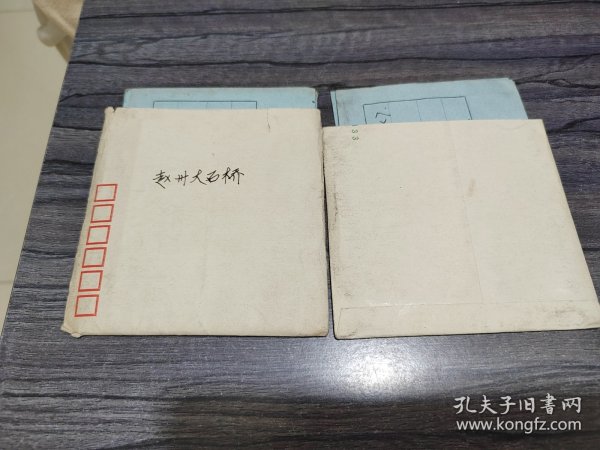 赵州大石桥
33
孔夫子旧書网
www.kongfz.com